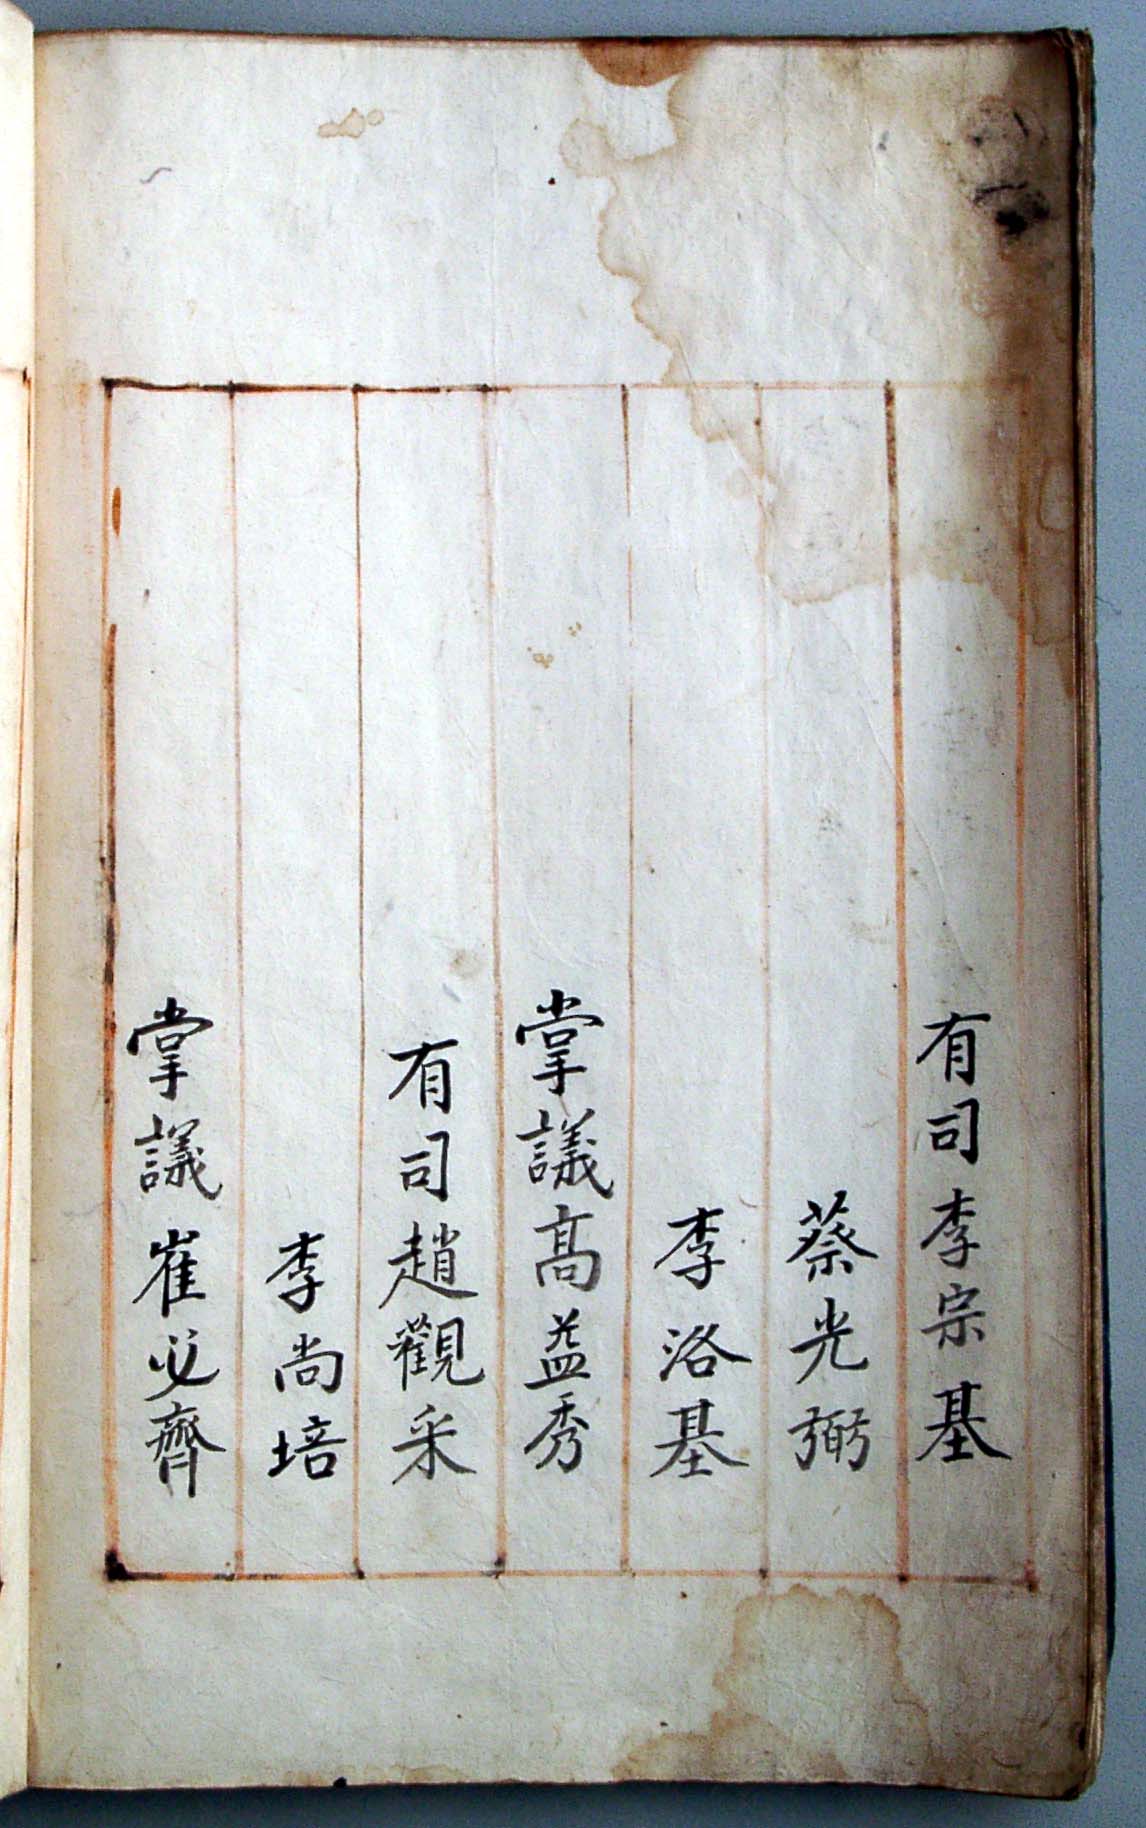 有司李宗基
蔡光弼
李洛基
掌議高益秀
有司趙觀采
李尚培
掌議崔必齊